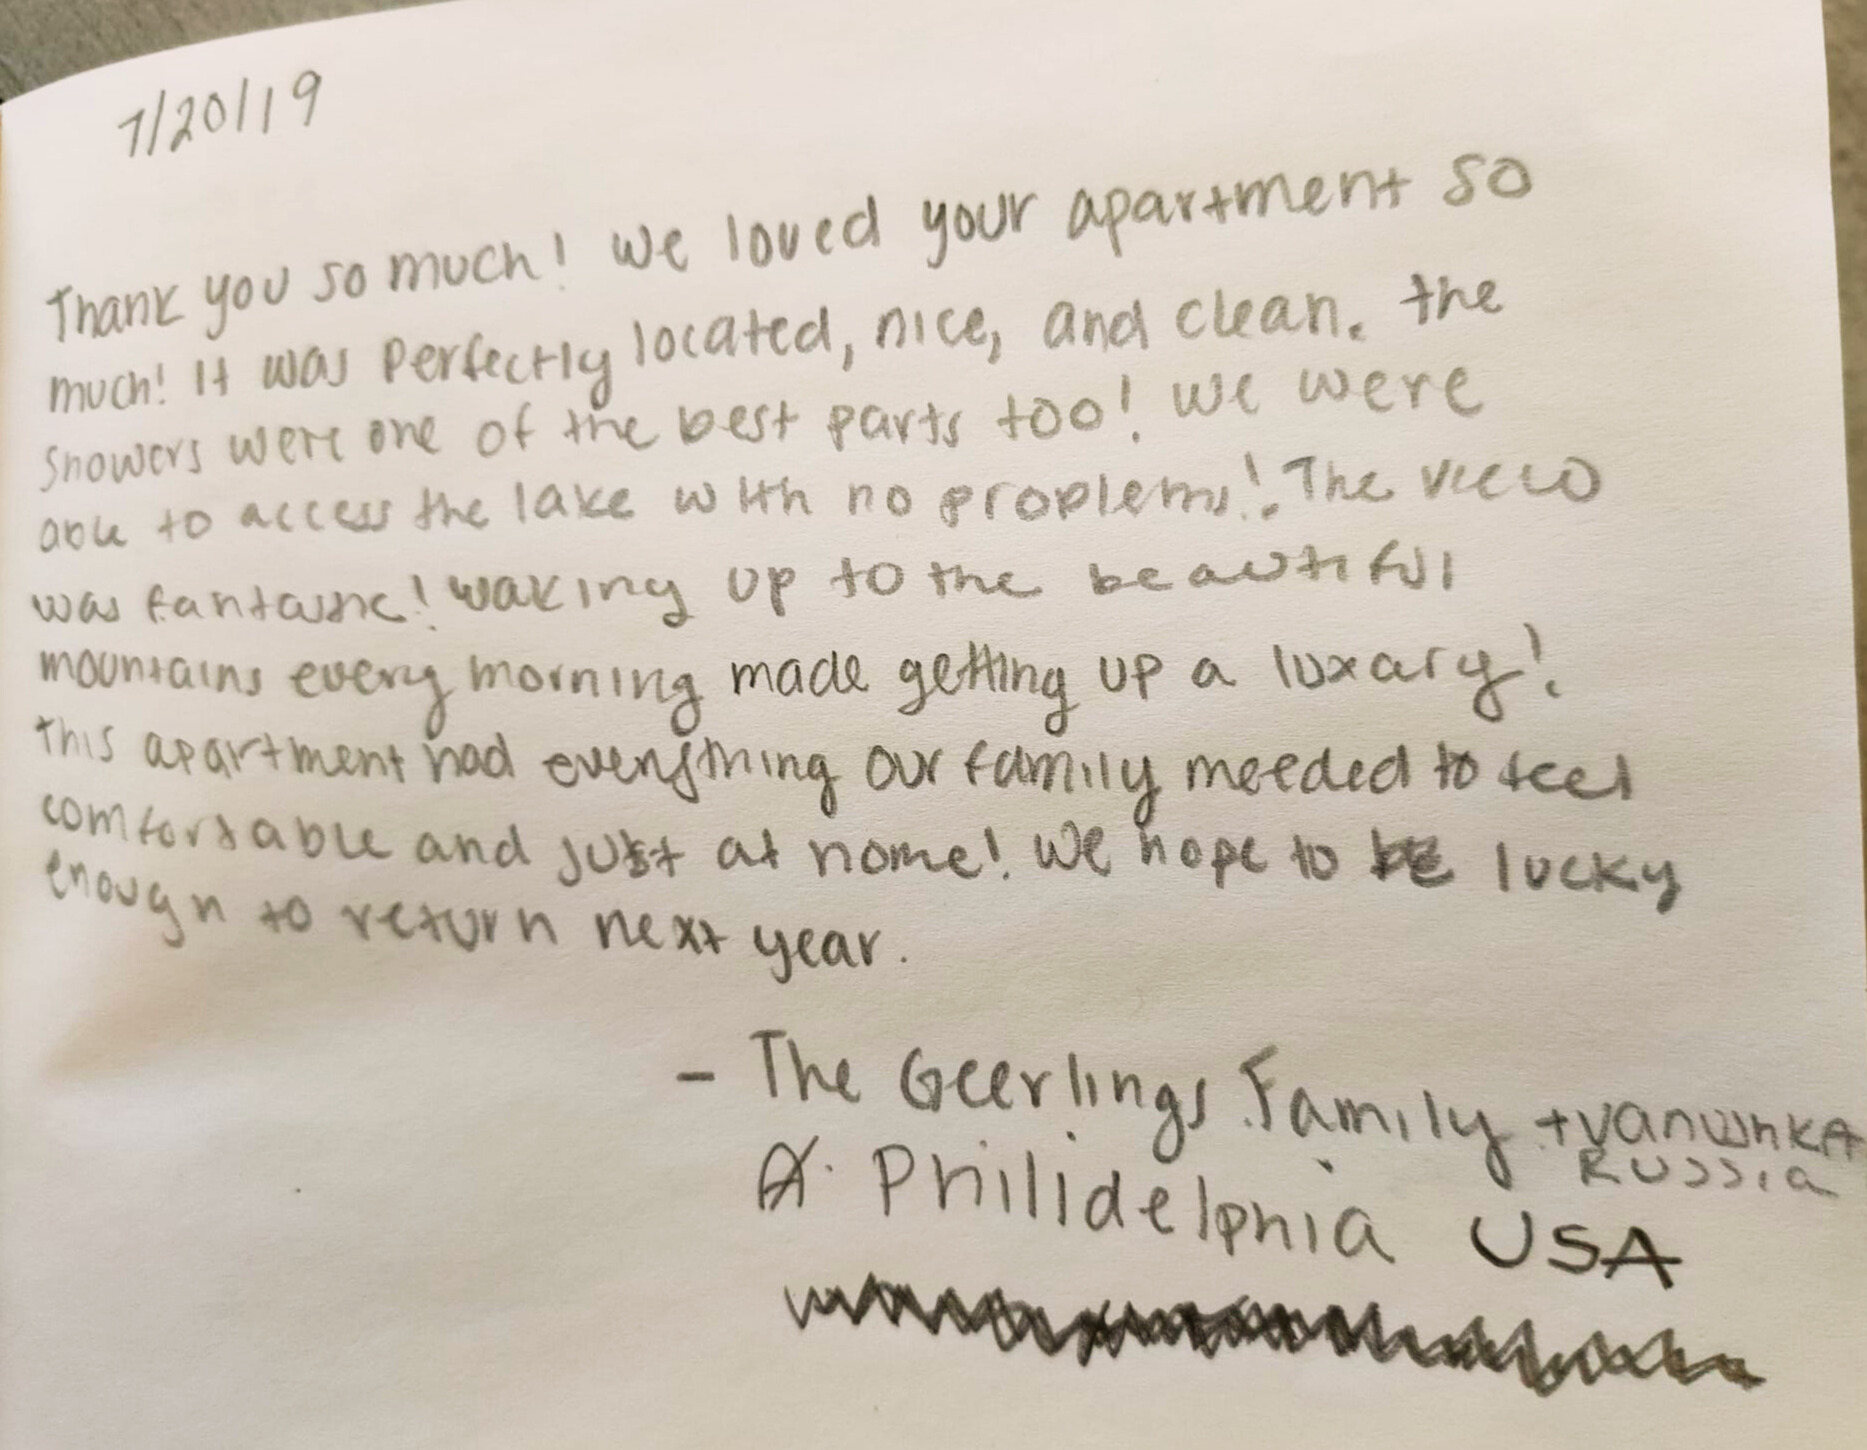 7/20/19
Thank you so much! We loved your apartment so
much! It was perfectly located, nice, and clean. the
showers were one of the best parts too! We were
able to access the lake with no proplems! The view
was fantastic! waking up to the beautiful
mountains every morning made getting up a luxary!
this apartment had everything our family needed to feel
comfortable and just at home! We hope to be lucky
enough to return next year.
- The Geerlings Family +
Russia
Philidelphia USA